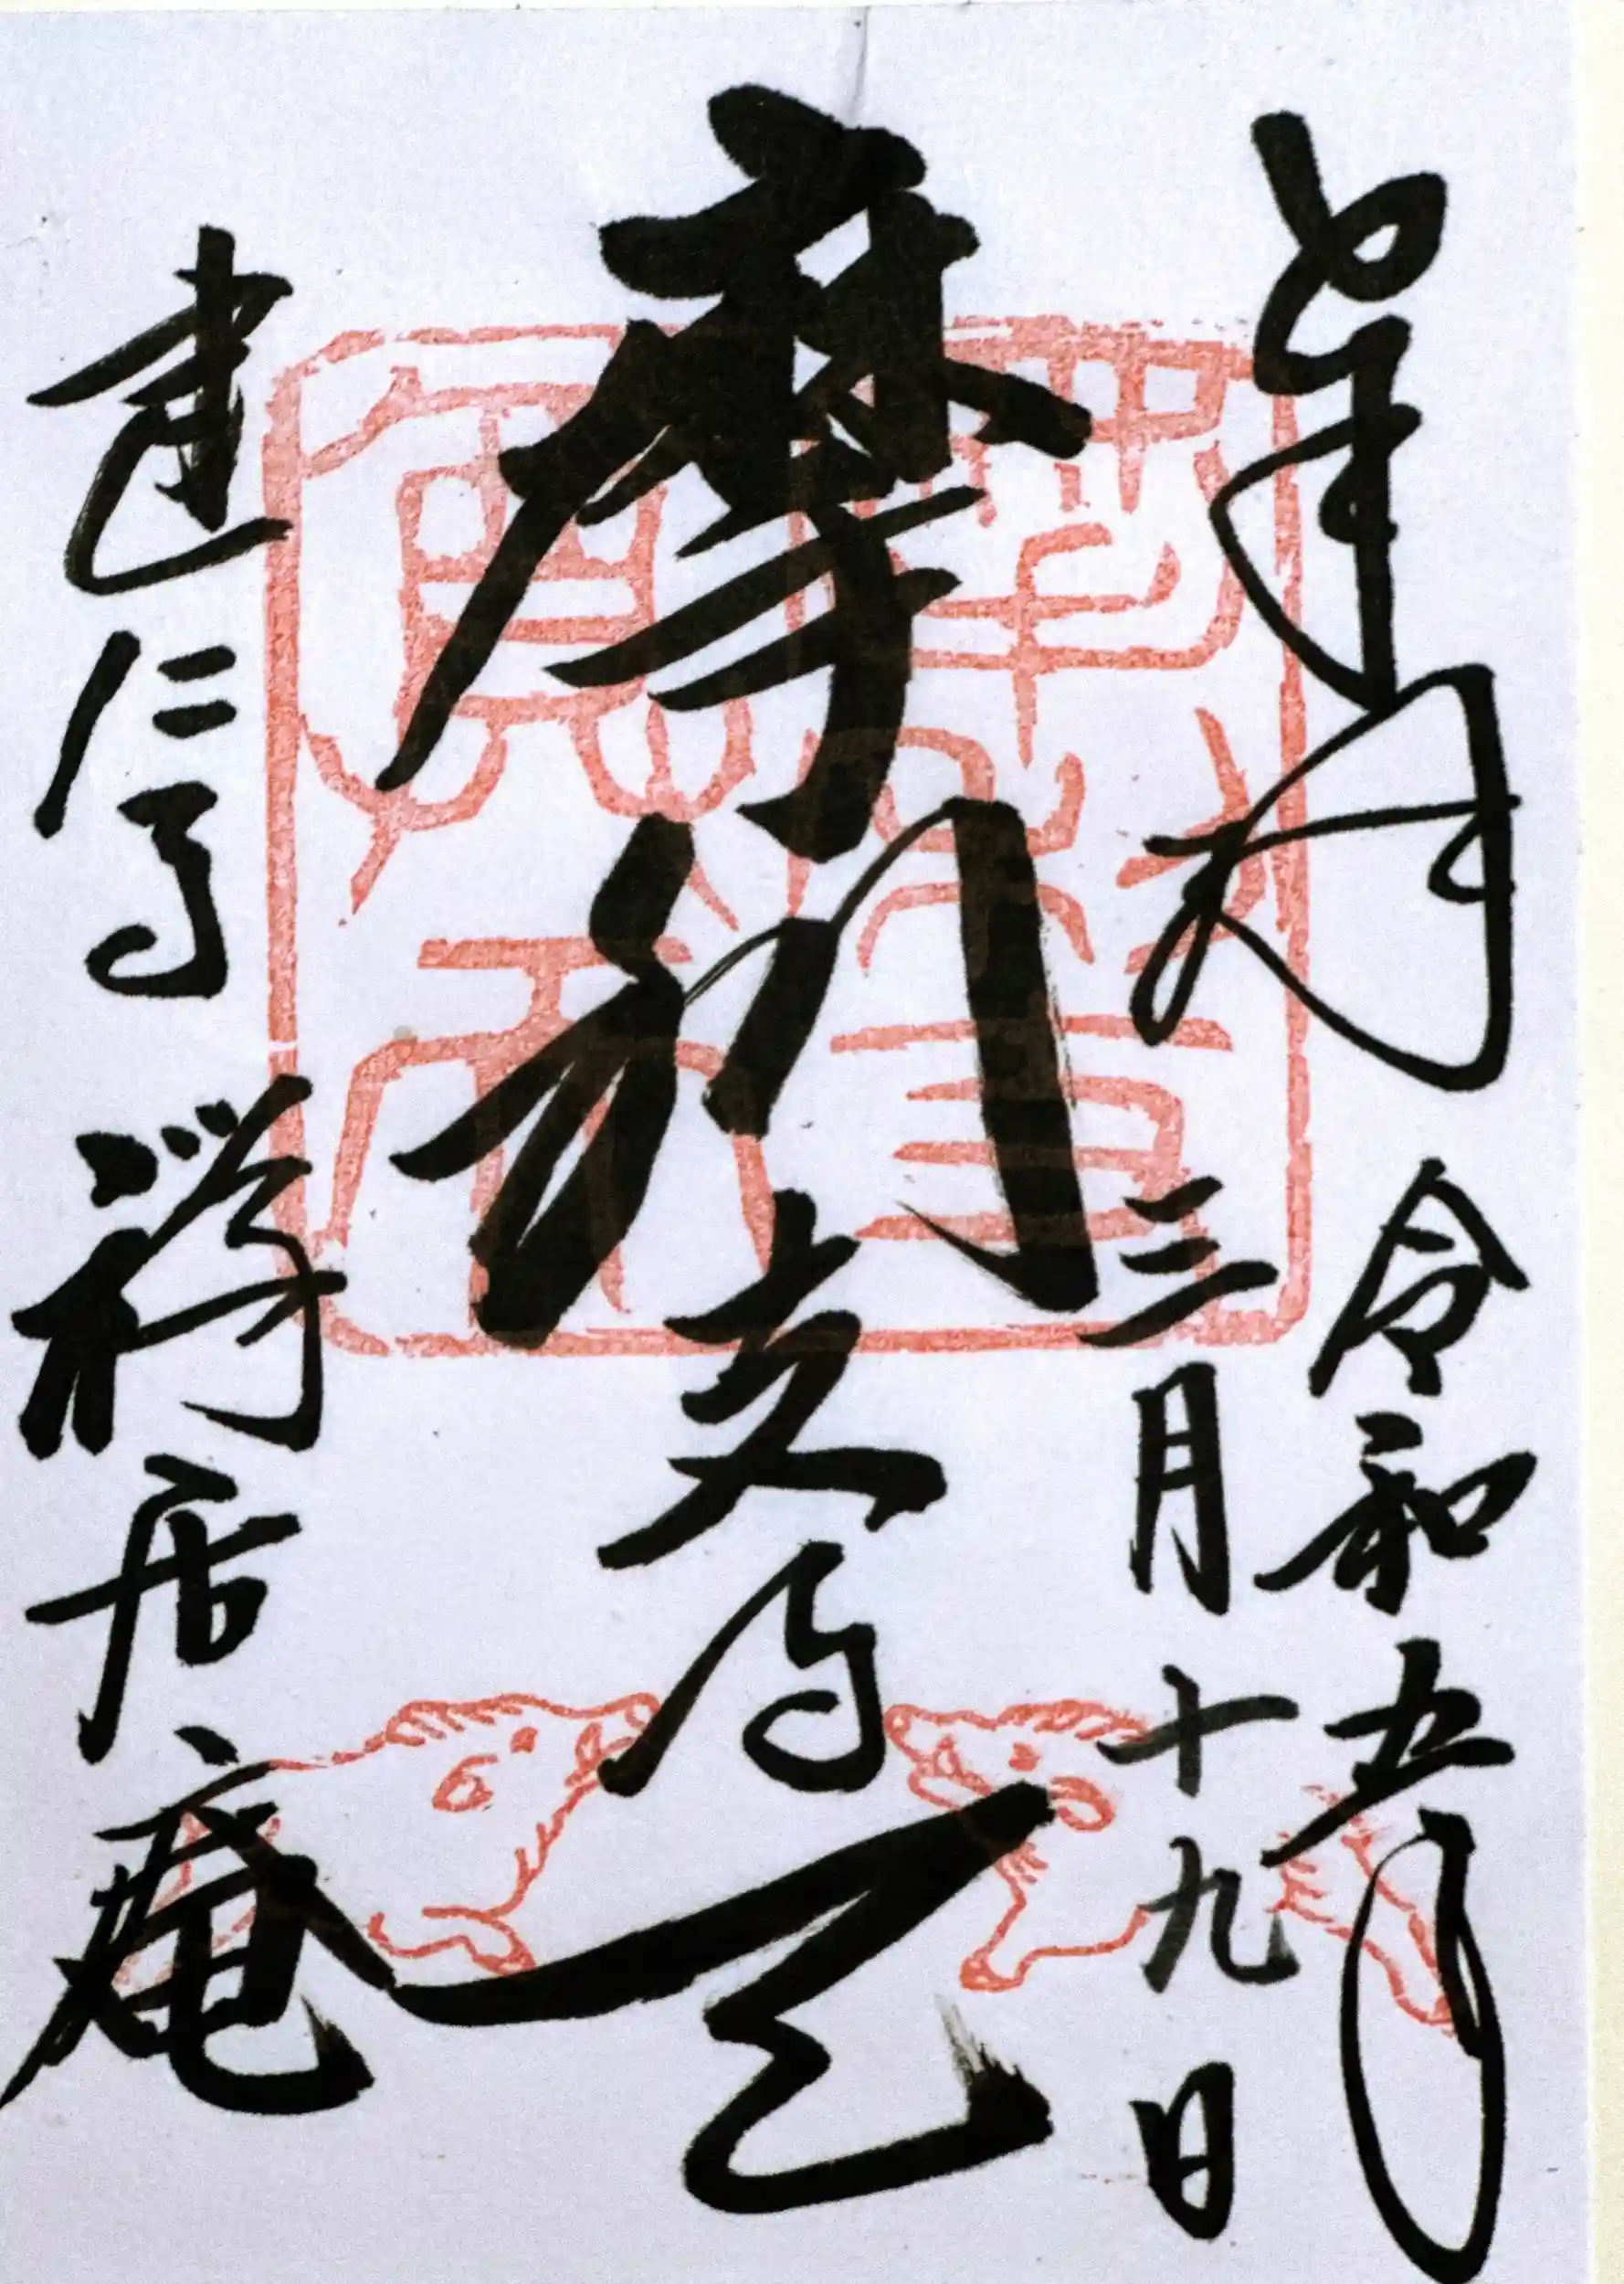 奉拝 令和五年
三月十九日
摩利支尊天
建仁寺 禅居庵